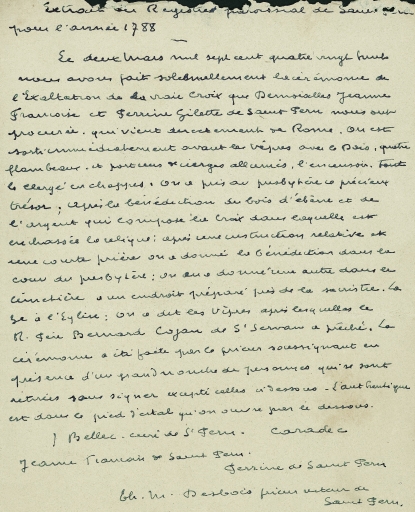 Extrait du Registre paroissial de Saint
pour l'année 1788
Le deux Mars mil sept cent quatre vingt huit
nous avons fait solennellement la cérémonie de
l'Exaltation de la vraie Croix que Demoiselles Jeanne
Françoise et Perrine Gilette de Saint Pern nous ont
procurée, qui vient directement de Rome. On est
sorti immédiatement avant les Vêpres avec le Dais, quatre
flambeaux, et porteurs de cierges allumés, l'encensoir. Tout
le clergé en chappes. On a pris au presbytère ce précieux
trésor; après la bénédiction du bois d'ébène et de
l'argent qui compose la Croix dans laquelle est
enchassée la relique; après une instruction relative et
une courte prière on a donné la bénédiction dans la
cour du presbytère; on en a donné une autre dans le
cimetière a un endroit préparé près de la sacristie. La
3e à l'Eglise; On a dit les Vêpres après lesquelles le
R. Père Bernard Cojan de St Servan a prêché. La
cérémonie a été faite par le prieur soussignant en
présence d'un grand nombre de personnes qui se sont
retirées sans signer excepté celles ci dessous - L'authentique
est dans le pied d'estal qu'on ouvre par le dessous.
J Bellec. curé de St Pern. Caradec
Jeanne Françoise de Saint Pern.
Perrine de Saint Pern
Ch. M. Desbois prieur recteur de
Saint Pern.